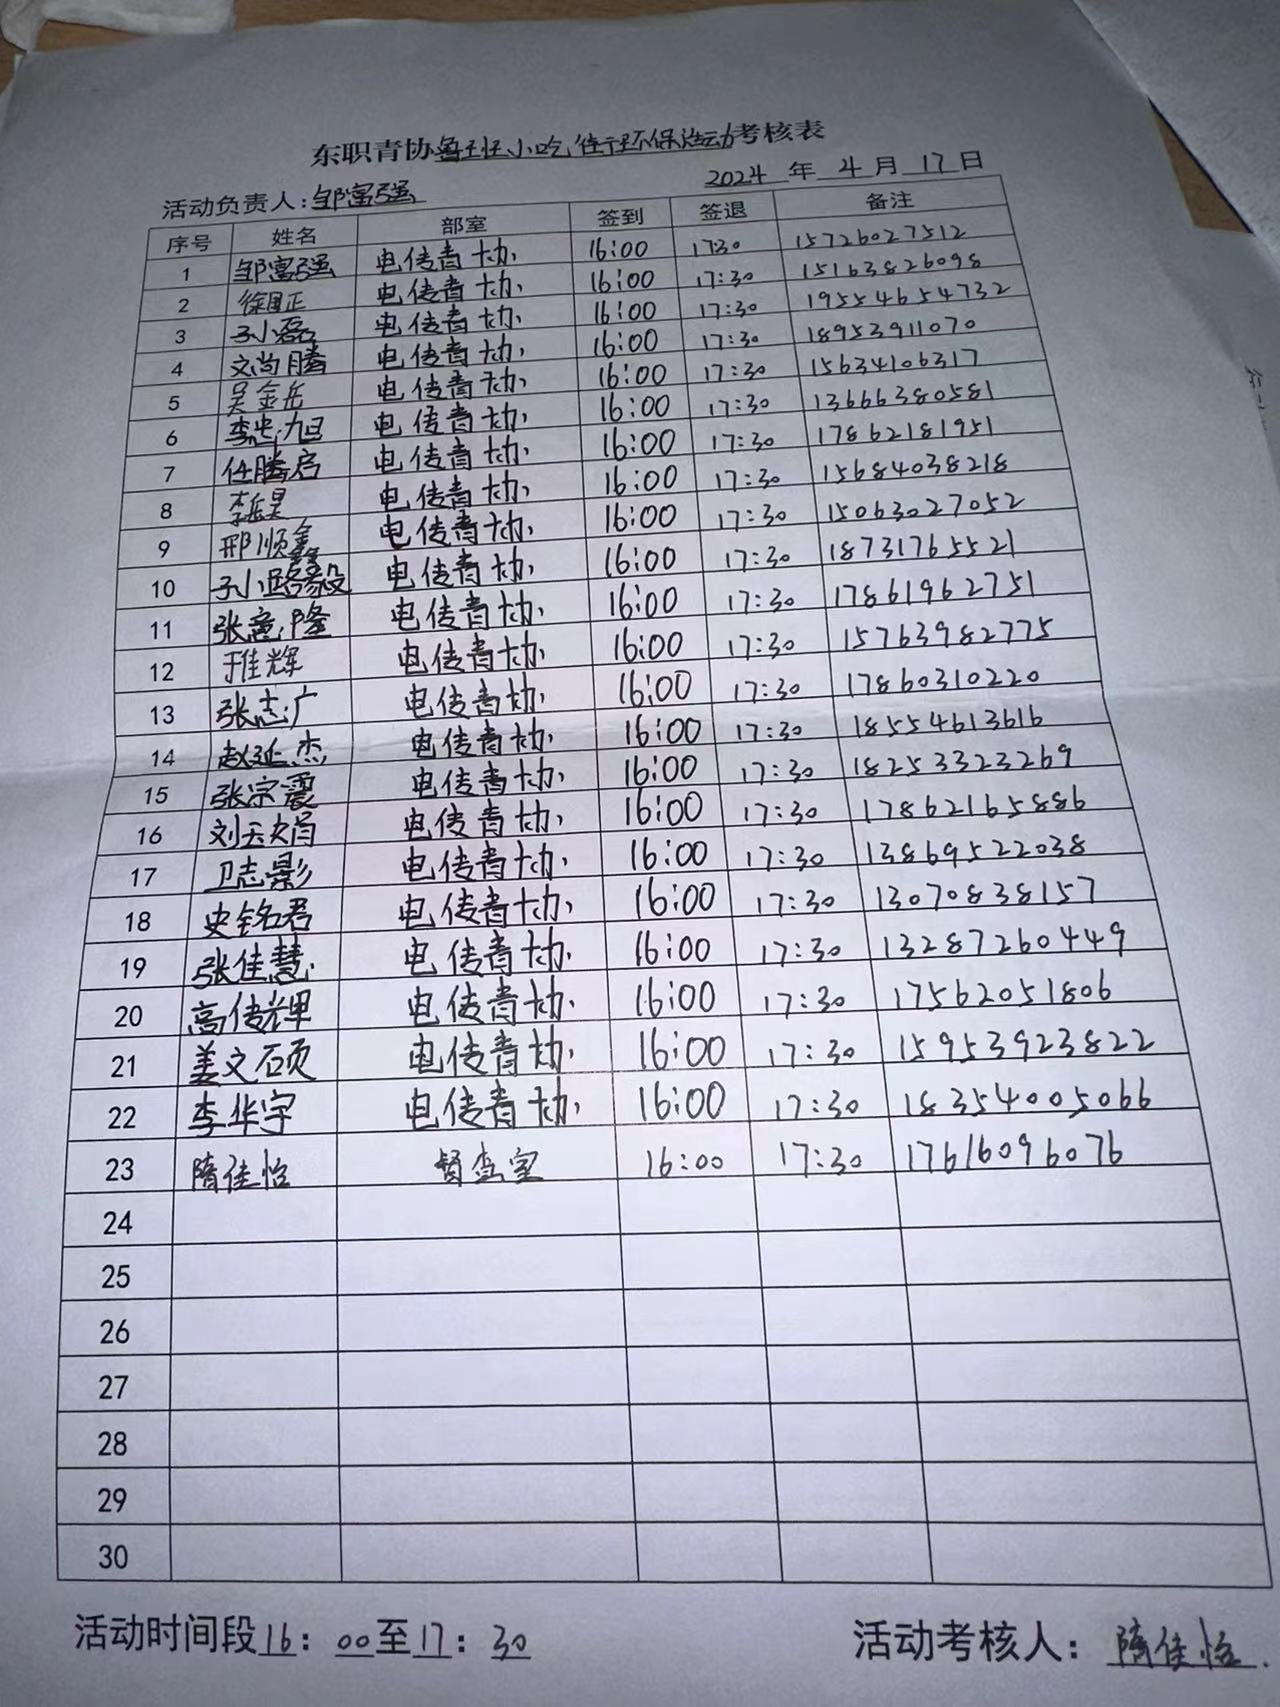 东职青协鲁班小吃街环保活动考核表
活动负责人：邹富强 2024年4月17日
序号 姓名 部室 签到 签退 备注
1 邹富强 电传青协 16:00 17:30 15726027512
2 徐国正 电传青协 16:00 17:30 15163826098
3 孙磊 电传青协 16:00 17:30 19554654732
4 文尚腾 电传青协 16:00 17:30 18953911070
5 吴金岳 电传青协 16:00 17:30 15634106317
6 李忠旭 电传青协 16:00 17:30 13666380581
7 任腾启 电传青协 16:00 17:30 17862181951
8 李岳昊 电传青协 16:00 17:30 15684038218
9 邢顺鑫 电传青协 16:00 17:30 15063027052
10 孙路毅 电传青协 16:00 17:30 18731765521
11 张意隆 电传青协 16:00 17:30 17861962751
12 于佳辉 电传青协 16:00 17:30 15763982775
13 张志广 电传青协 16:00 17:30 17860310220
14 赵延杰 电传青协 16:00 17:30 18554613616
15 张宗震 电传青协 16:00 17:30 18253323269
16 刘天娟 电传青协 16:00 17:30 17862165886
17 卫志影 电传青协 16:00 17:30 13869522038
18 史铭君 电传青协 16:00 17:30 13070838157
19 张佳慧 电传青协 16:00 17:30 13287260449
20 高传辉 电传青协 16:00 17:30 17562051806
21 姜文硕 电传青协 16:00 17:30 15953923822
22 李华宇 电传青协 16:00 17:30 18354005066
23 隋佳怡 督查室 16:00 17:30 17616096076
24
25
26
27
28
29
30
活动时间段16：00至17：30 活动考核人：隋佳怡